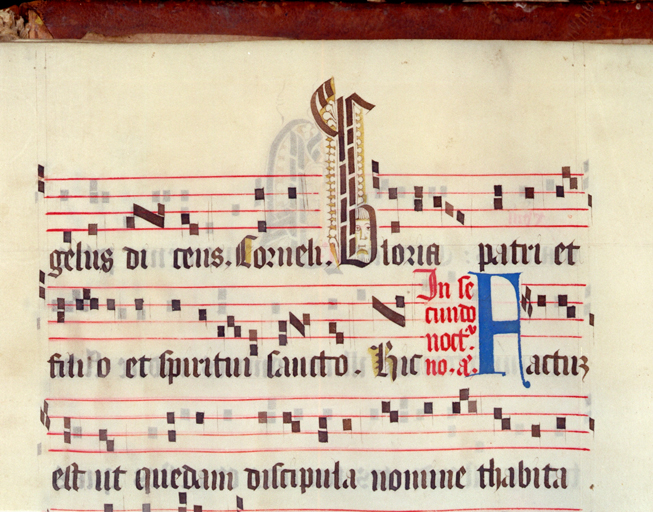 gelus dicens. Corneli. Gloria patri et
filio et spiritui sancto. Hic
In se
cundo
noct.
no. a.
Factum
est ut quedam discipula nomine thabita